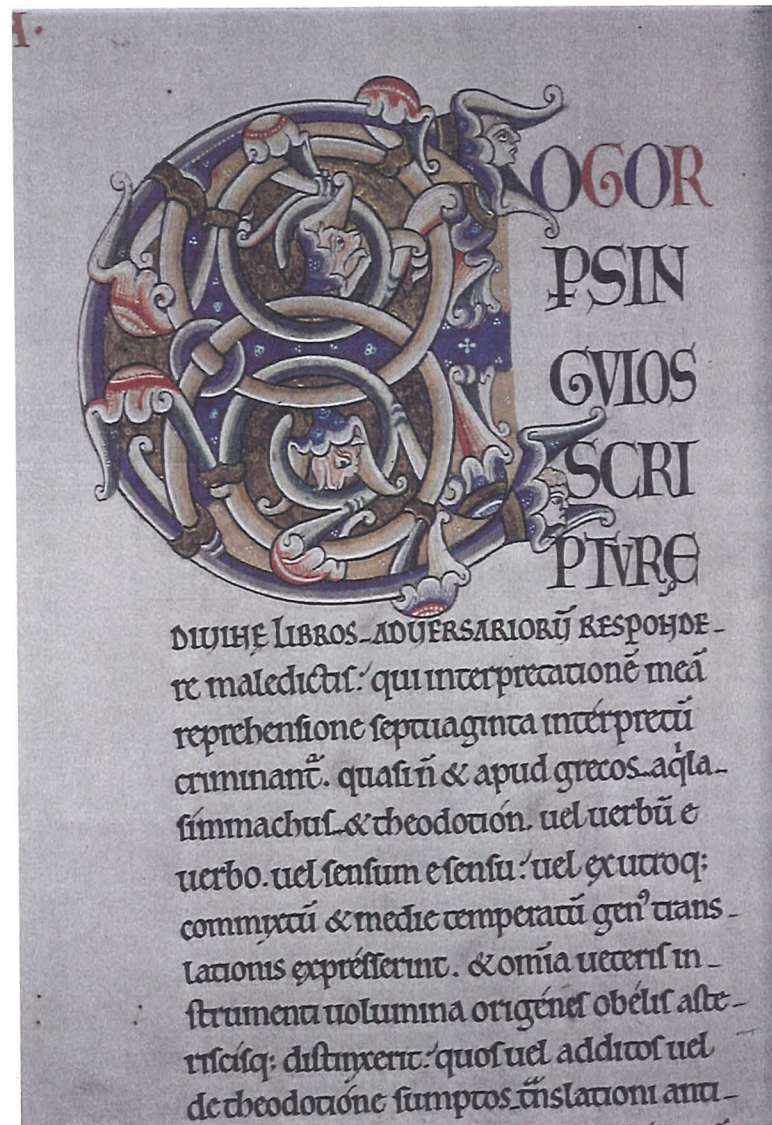 A·
COGOR
PSIN
GVIOS
SCRI
PTVRE
DIUINE LIBROS_ADUERSARIORŪ RESPONDE_
re maledictis:' qui interpretationē meā
reprehensione septuaginta intérpretū
criminant̄. quasi n̄ & apud grecos_aqͥla_
símmachus_& theodotión. uel uerbū e
uerbo. uel sensum e sensu:' uel ex utroq;
commixtū & medie temperatū genꝰ trans_
lationis exprésserint. & om̄ia ueteris in_
strumenti uolumina origénes obélis aste_
riscisq; distinxerit:' quos uel additos uel
de theodotióne sumptos_tͣnslationi anti_